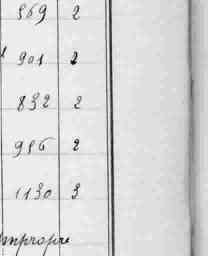 569 2
901 2
832 2
986 2
1130 3
impropre